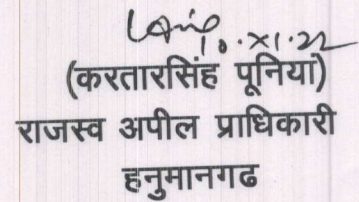 10.XI.22
(करतारसिंह पूनिया)
राजस्व अपील प्राधिकारी
हनुमानगढ